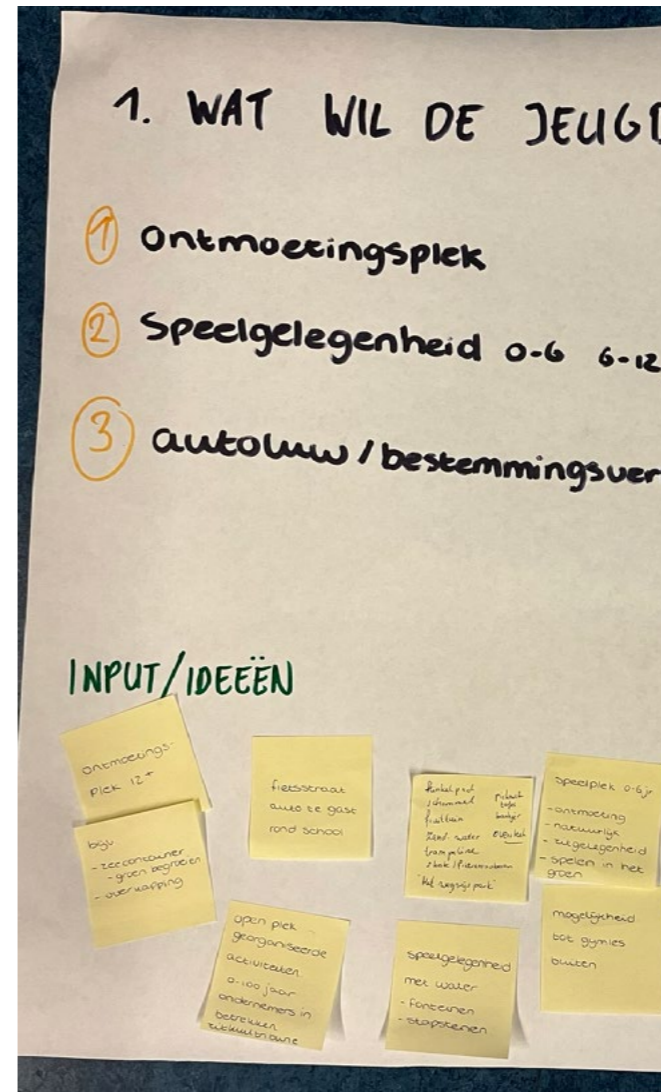 1. WAT WIL DE JEUGD
① Ontmoetingsplek
② Speelgelegenheid 0-6 6-12
③ autoluw / bestemmingsver
INPUT/IDEEËN
ontmoetings-
plek 12+
bijv
- zeecontainer
- groen begroeien
- overkapping
fietsstraat
auto te gast
rond school
open plek
georganiseerde
activiteiten
0-100 jaar
ondernemers in
betrekken
zitkuil tribune
hinkelpad
schommel
fruittuin
zand. water
trampoline
picknick
tafel
bankje
speelgelegenheid
met water
- fonteinen
- stapstenen
speelplek 0-6jr
- ontmoeting
- natuurlijk
- zitgelegenheid
- spelen in het
groen
mogelijkheid
tot gymles
buiten